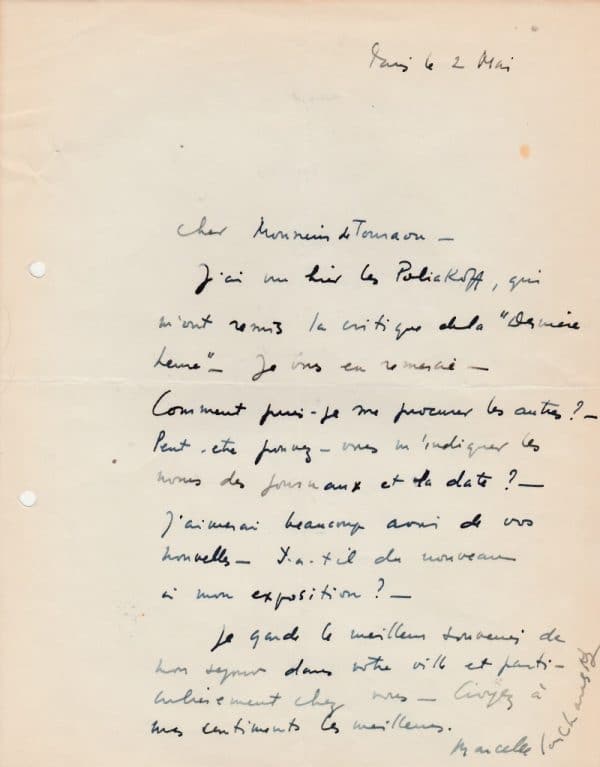 Paris le 2 Mai
Cher Monsieur de Tournaou —
J'ai vu hier les Poliakoff, qui
m'ont remis la critique de la "Dernière
heure" — Je vous en remercie —
Comment puis-je me procurer les autres? —
Peut-etre pouvez-vous m'indiquer les
noms des journaux et la date? —
J'aimerai beaucoup avoir de vos
nouvelles — Y-a-t-il du nouveau
à mon exposition? —
Je garde le meilleur souvenir de
mon sejour dans votre ville et parti-
culièrement chez vous — Croyez à
mes sentiments les meilleurs.
Marcelle